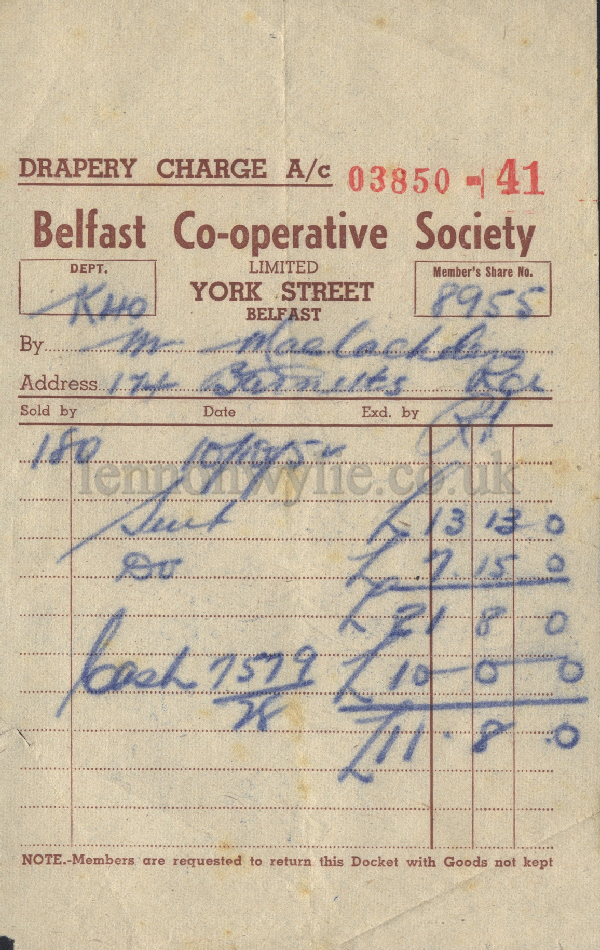 DRAPERY CHARGE A/c 03850 - 41
Belfast Co-operative Society
DEPT. LIMITED Member's Share No.
YORK STREET
K40 BELFAST 8955
By Mr
Address 174 Barnetts Rd
Sold by Date Exd. by
180
lennonwylie.co.uk
Suit £ 13 13 0
Do £ 7. 15 0
£ 21 8 0
Cash 7579 £ 10 0 0
28
£11. 8 .0
NOTE.-Members are requested to return this Docket with Goods not kept